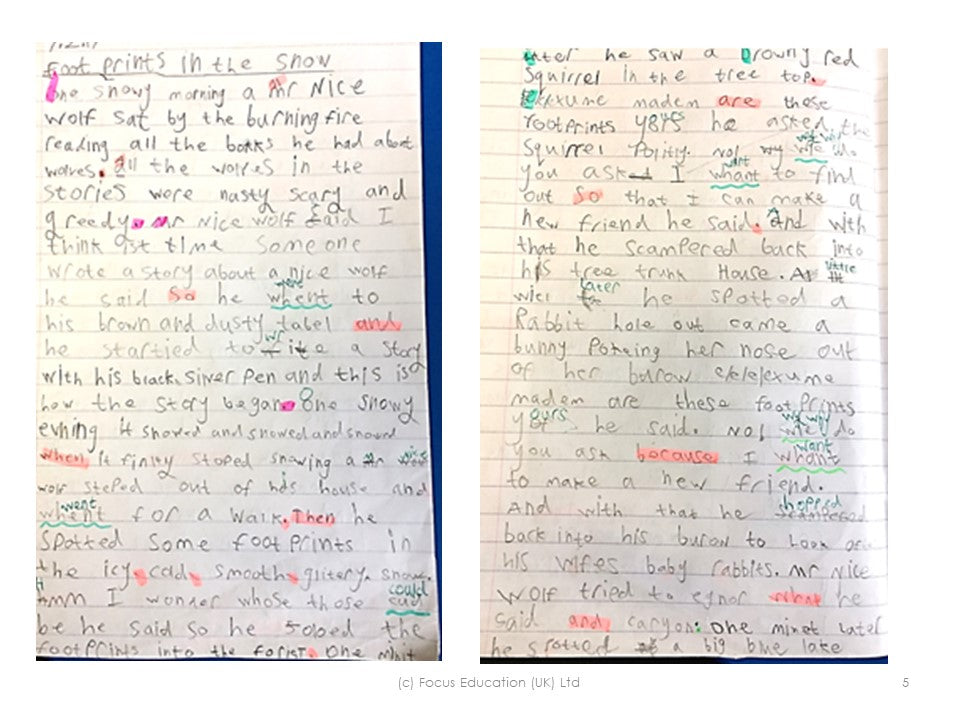 foot prints in the snow
One snowy morning a Mr Nice
wolf sat by the burning fire
reading all the books he had about
wolves. All the wolves in the
stories were nasty scary and
greedy. Mr Nice wolf said I
think 9st time someone
wrote a story about a nice wolf
he said so he whent to
went
his brown and dusty tabel and
he startied to write a story
with his black. Silver Pen and this is
how the story began. One snowy
evning it snowed and snowed and snowed
when it finlly stoped snowing a Mr Nice
wolf steped out of his house and
whent for a walk. Then he
went
spotted some footprints in
the icy, cold, smooth, glitery, snow.
Hmm I wonder whose those
could
be he said so he foloed the
footprints into the forist. One minit
later he saw a browny red
Squirrel in the tree top.
madem are these
footprints yours he asked the
Squirrel Politly. No! why do
you ask I whant to find
want
out so that I can make a
new friend he said. And with
that he scampered back into
his tree trunk House. A little
wiel later he spotted a
Rabbit hole out came a
bunny Poking her nose out
of her burow exume
madem are these footprints
yours he said. No! why do
you ask because I whant
want
to make a new friend.
And with that he hopped
back into his burow to look
his wifes baby rabbits. Mr Nice
wolf tried to egnor what he
said and caryon. One minet later
he spotted a big blue lake
(c) Focus Education (UK) Ltd
5